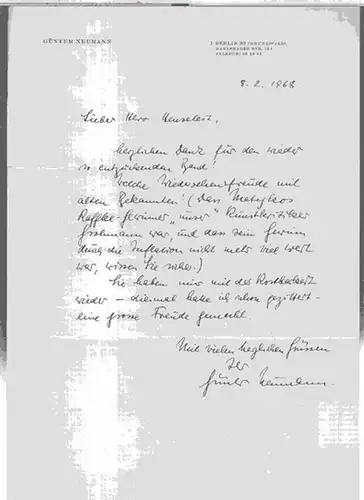 GÜNTER NEUMANN
1 BERLIN
8. 2. 1968
Lieber Herr
herzlichen Dank für den wieder
so entzückenden Band!
Welche Wiedersehensfreude mit
alten Bekannten! (Dass
Raffke-Gewinner "unser" Kunstkritiker
war, und dass sein Gewinn
durch die Inflation nicht mehr viel wert
war, wissen Sie sicher.)
Sie haben mir mit der Kostbarkeit
wieder – diesmal habe ich schon gezittert –
eine grosse Freude gemacht.
Mit vielen herzlichen Grüssen
Ihr
Günter Neumann.